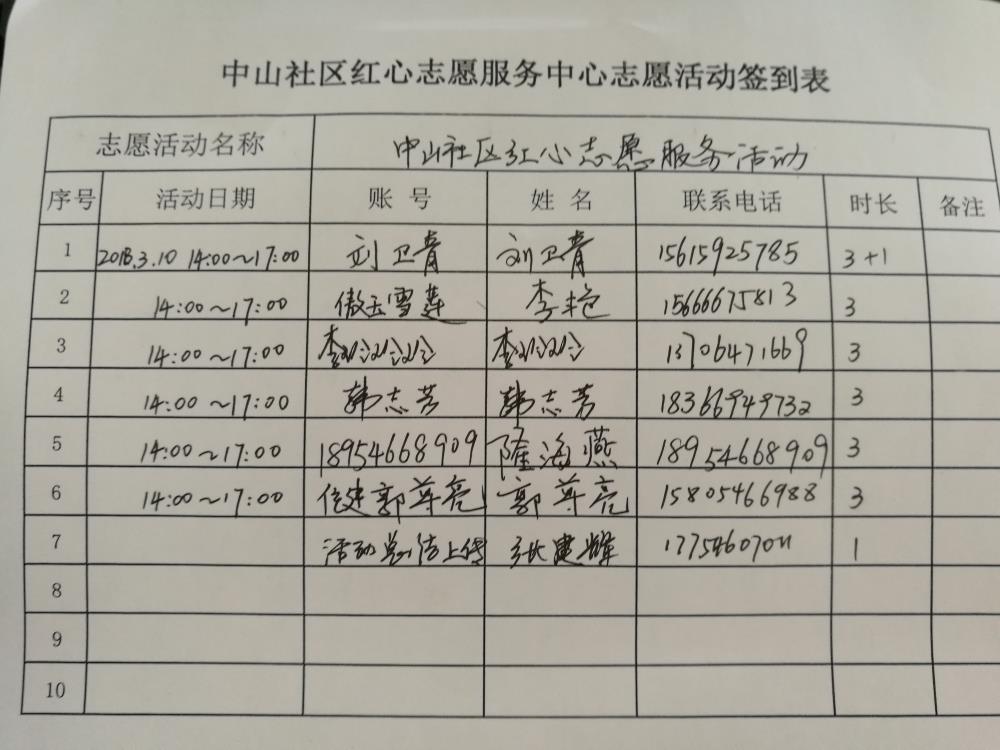 中山社区红心志愿服务中心志愿活动签到表
志愿活动名称 中山社区红心志愿服务活动
序号 活动日期 账号 姓名 联系电话 时长 备注
1 2018.3.10 14:00~17:00 刘卫青 刘卫青 15615925785 3+1
2 14:00~17:00 傲云雪莲 李艳 15666675813 3
3 14:00~17:00 13706471669 3
4 14:00~17:00 韩志芳 韩志芳 18366949732 3
5 14:00~17:00 18954668909 隆海燕 18954668909 3
6 14:00~17:00 住建郭尊亮 郭尊亮 15805466988 3
7 活动总结上传 张建辉 17754607011 1
8
9
10